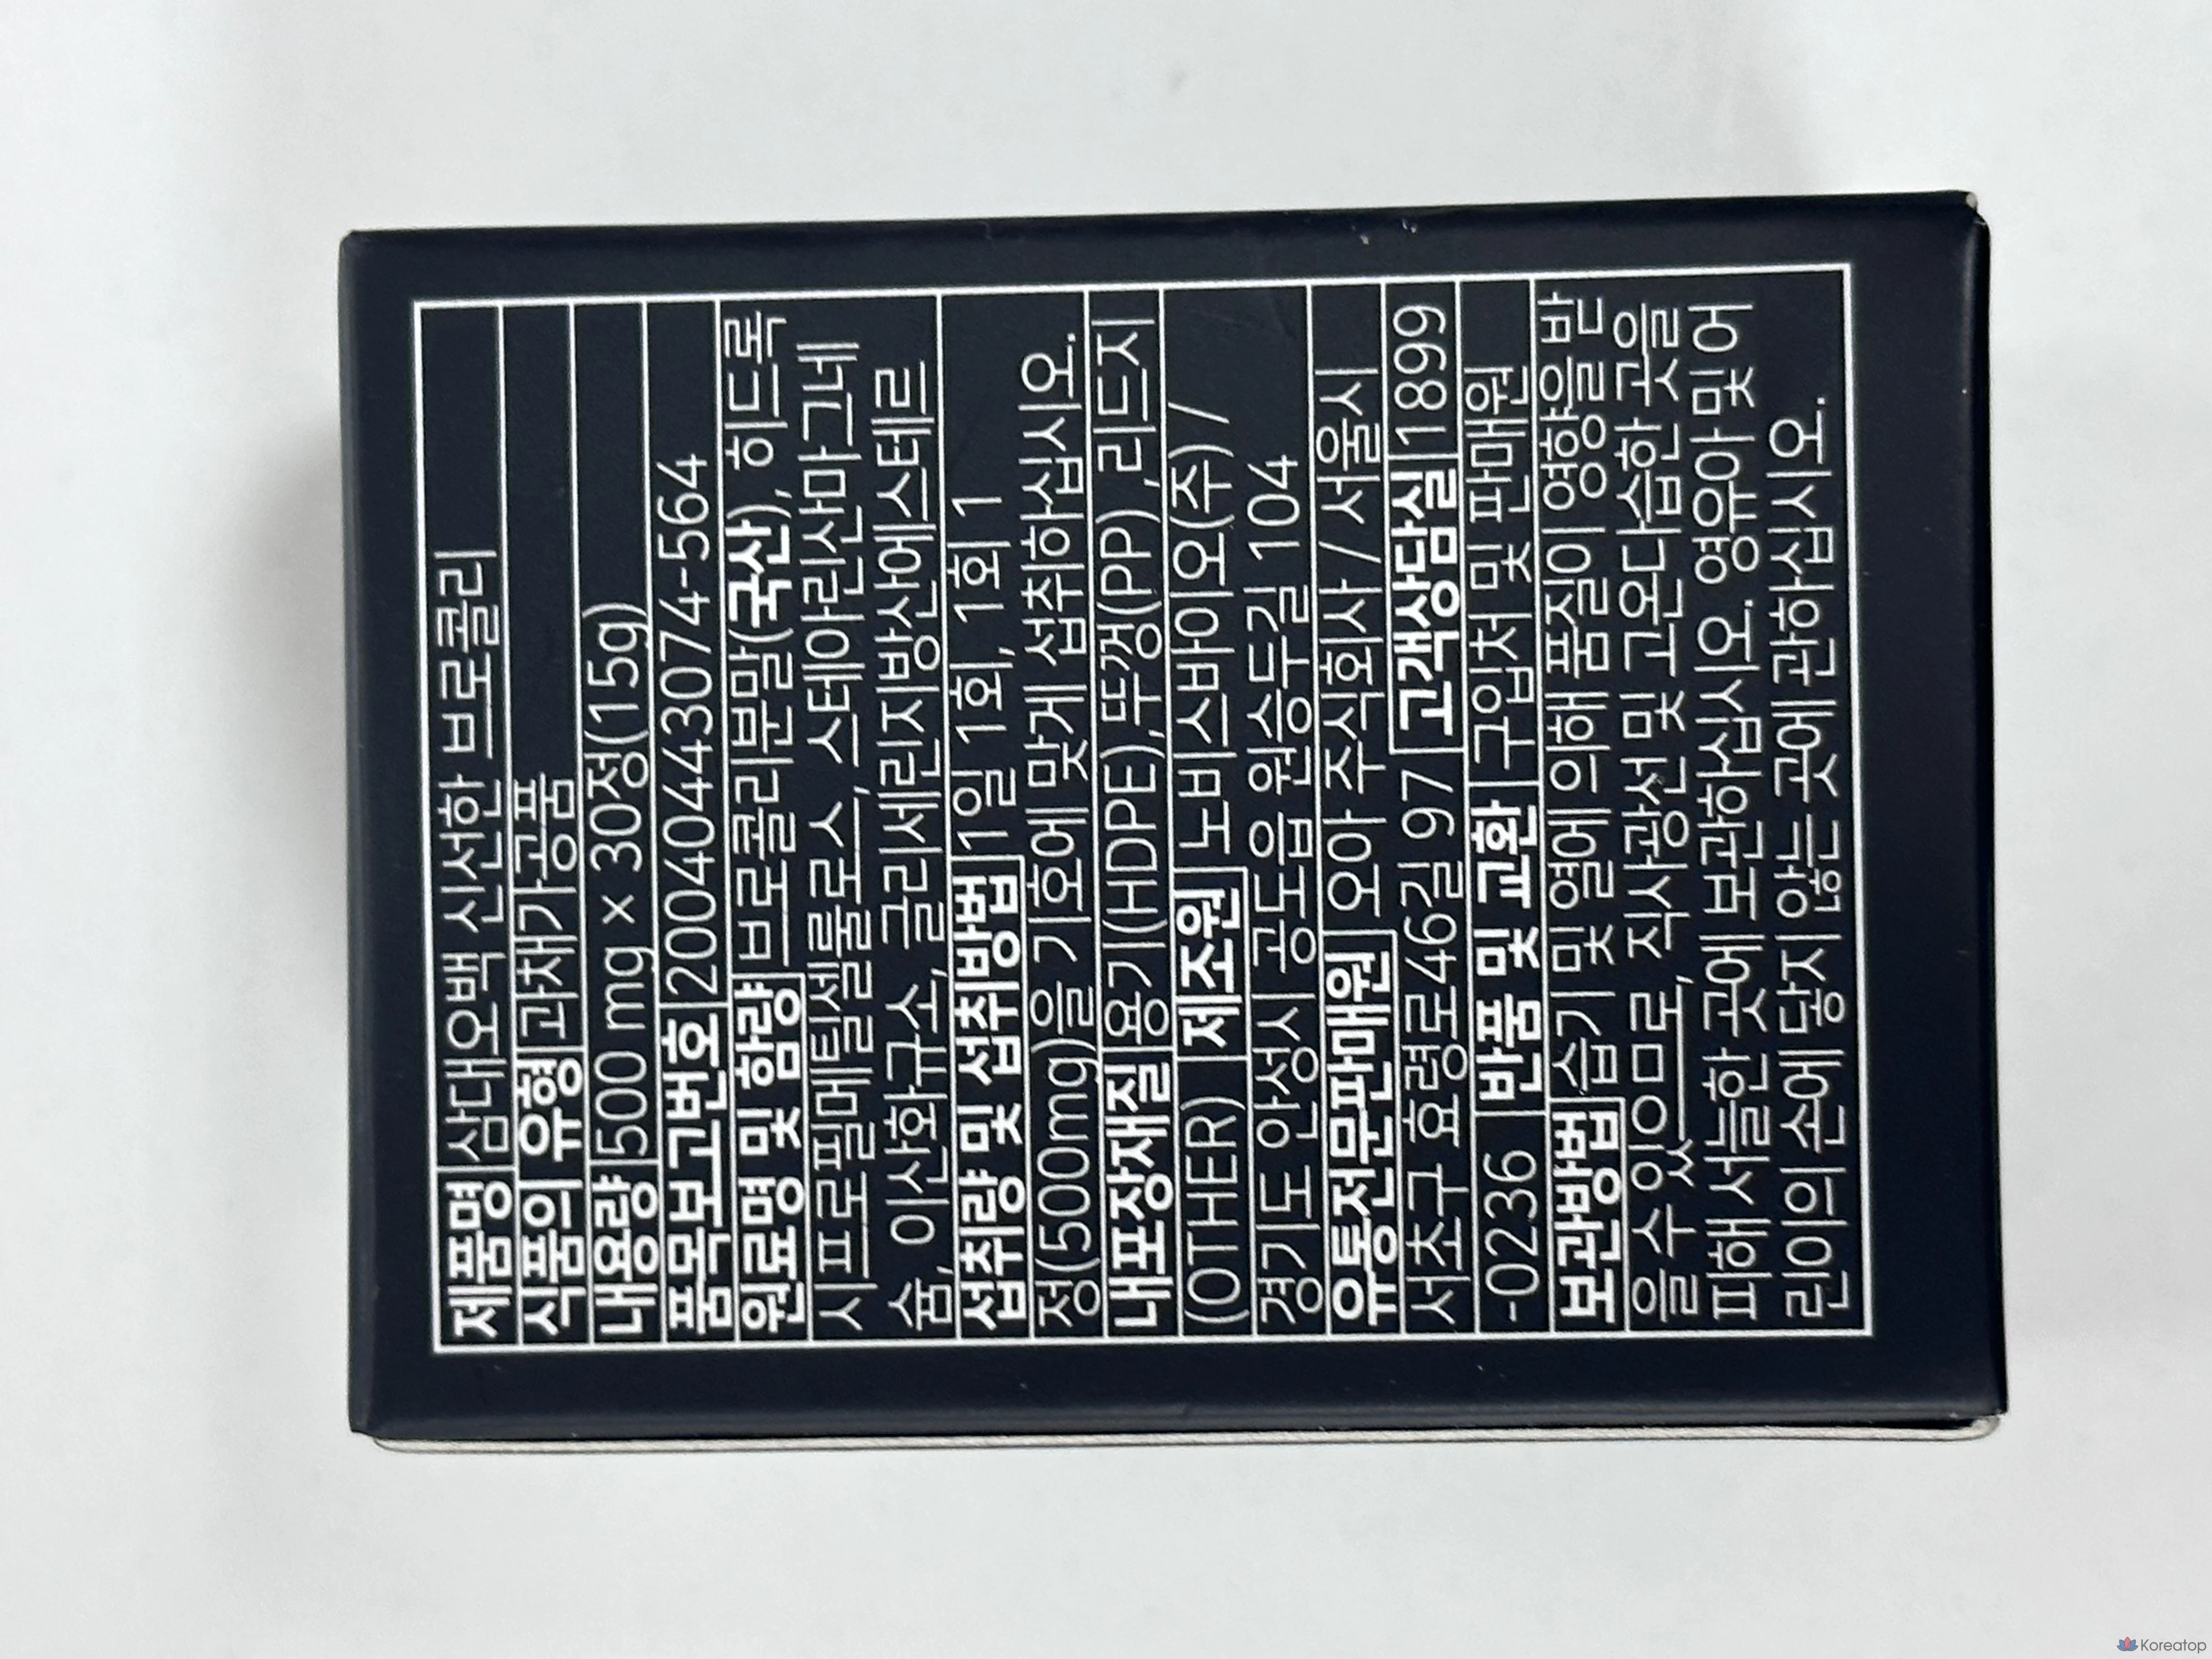 제품명 삼대오백 신선한 브로콜리
식품의 유형 과채가공품
내용량 500 mg x 30정(15g)
품목보고번호 20040443074-564
원료명 및 함량 브로콜리분말(국산), 히드록
시프로필메틸셀룰로스, 스테아린산마그네
슘, 이산화규소, 글리세린지방산에스테르
섭취량 및 섭취방법 1일 1회, 1회 1
정(500mg)을 기호에 맞게 섭취하십시오.
내포장재질 용기(HDPE),뚜껑(PP) ,리드지
(OTHER) 제조원 노비스바이오(주) /
경기도 안성시 공도읍 원승두길 104
유통전문판매원 오아 주식회사 / 서울시
서초구 효령로46길 97 고객상담실 1899
-0236 반품 및 교환 구입처 및 판매원
보관방법 습기 및 열에 의해 품질이 영향을 받
을 수 있으므로, 직사광선 및 고온다습한 곳을
피해 서늘한 곳에 보관하십시오. 영유아 및 어
린이의 손에 닿지 않는 곳에 관하십시오.
Koreatop